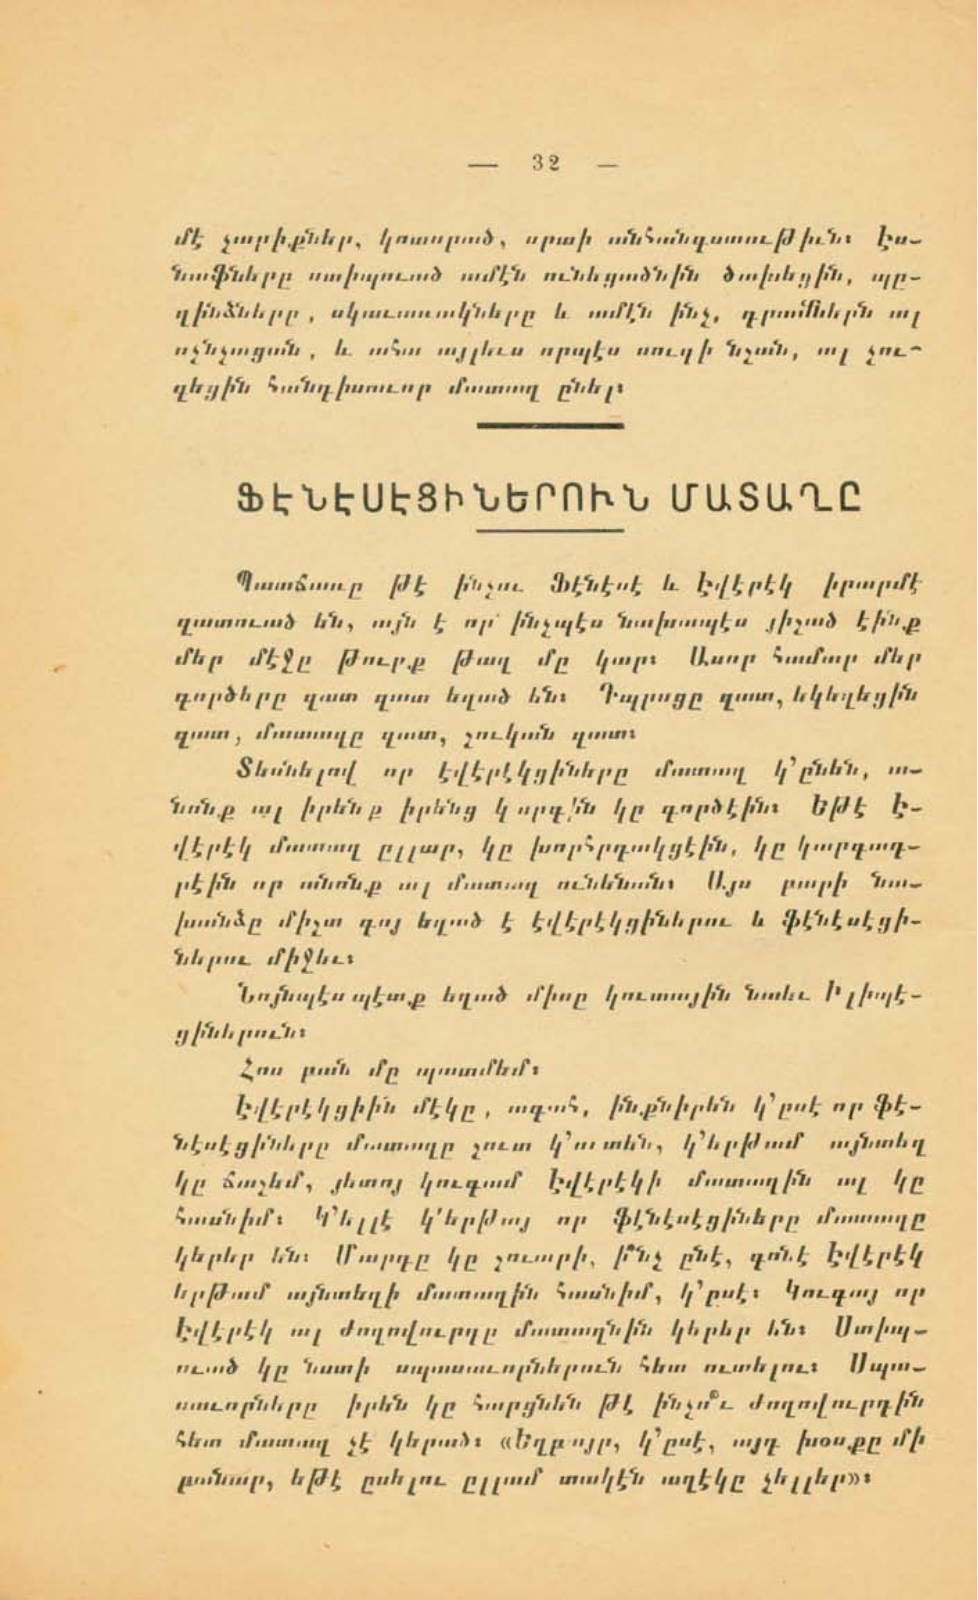 — 32 —
մէ չարիքներ, կոտորած, սրտի անհանգստութիւն։ Էս-
նաֆները ստիպուած ամէն ունեցածնին ծախեցին, պը-
ղինձները, սկաւառակները և ամէն ինչ, դրամներն ալ
ոչնչացան, և ահա այլեւս որպէս սուգի նշան, ալ չու-
զեցին հանդիսաւոր մատաղ ընել։
ՖԷՆԷՍԷՑԻՆԵՐՈՒՆ ՄԱՏԱՂԸ
Պատճառը թէ ինչու Ֆէնէսէ և Էվէրէկ իրարմէ
զատուած են, այն է որ ինչպէս նախապէս յիշած էինք
մեր մէջը թուրք թաղ մը կար։ Ասոր համար մեր
գործերը զատ զատ եղած են։ Դպրոցը զատ, եկեղեցին
զատ, մատաղը զատ, շուկան զատ։
Տեսնելով որ էվէրէկցիները մատաղ կ՚ընեն, ա-
նոնք ալ իրենք իրենց կարգին կը գործէին։ Եթէ Է-
վէրէկ մատաղ ըլլար, կը խորհրդակցէին, կը կարգադ-
րէին որ անոնք ալ մատաղ ունենան։ Այս բարի նա-
խանձը միշտ գոյ եղած է էվէրէկցիներու և ֆէնէսէցի-
ներու միջեւ։
Նոյնպէս պէտք եղած միսը կուտային նաեւ Իլիպէ-
ցիներուն։
Հոս բան մը պատմեմ։
Էվէրէկցիին մէկը, ագահ, ինքնիրեն կ՚ըսէ որ ֆէ-
նէսէցիները մատաղը շուտ կ՚ուտեն, կ՚երթամ այնտեղ
կը ճաշեմ, յետոյ կուգամ Էվէրէկի մատաղին ալ կը
հասնիմ։ Կ՚ելլէ կ՚երթայ որ ֆէնէսէցիները մատաղը
կերեր են։ Մարդը կը շուարի, ի՞նչ ընէ, գոնէ Էվէրէկ
երթամ այնտեղի մատաղին հասնիմ, կ՚ըսէ։ Կուգայ որ
Էվէրէկ ալ ժողովուրդը մատաղնին կերեր են։ Ստիպ-
ուած կը նստի սպասաւորներուն հետ ուտելու։ Սպա-
սաւորները իրեն կը հարցնեն թէ ինչո՞ւ ժողովուրդին
հետ մատաղ չէ կերած։ «Եղբայր, կ՚ըսէ, այդ խօսքը մի
բանար, եթէ ըսելու ըլլամ տակէն աղէկը չելլեր»։